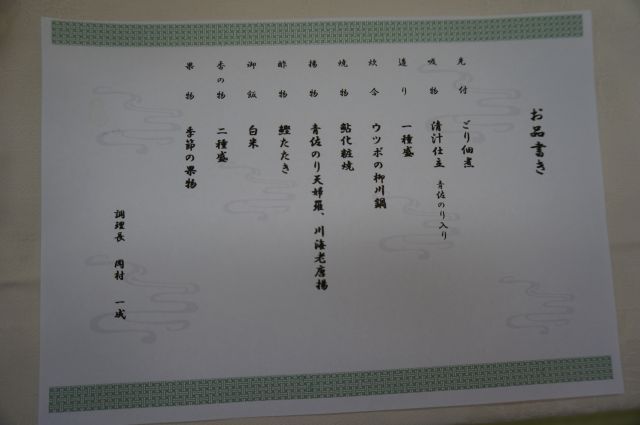 お品書き
先付 ごり佃煮
吸物 清汁仕立 青佐のり入り
造り 一種盛
炊合 ウツボの柳川鍋
焼物 鮎化粧焼
揚物 青佐のり天婦羅、川海老唐揚
酢物 鰹たたき
御飯 白米
香の物 二種盛
果物 季節の果物
調理長 岡村 一成